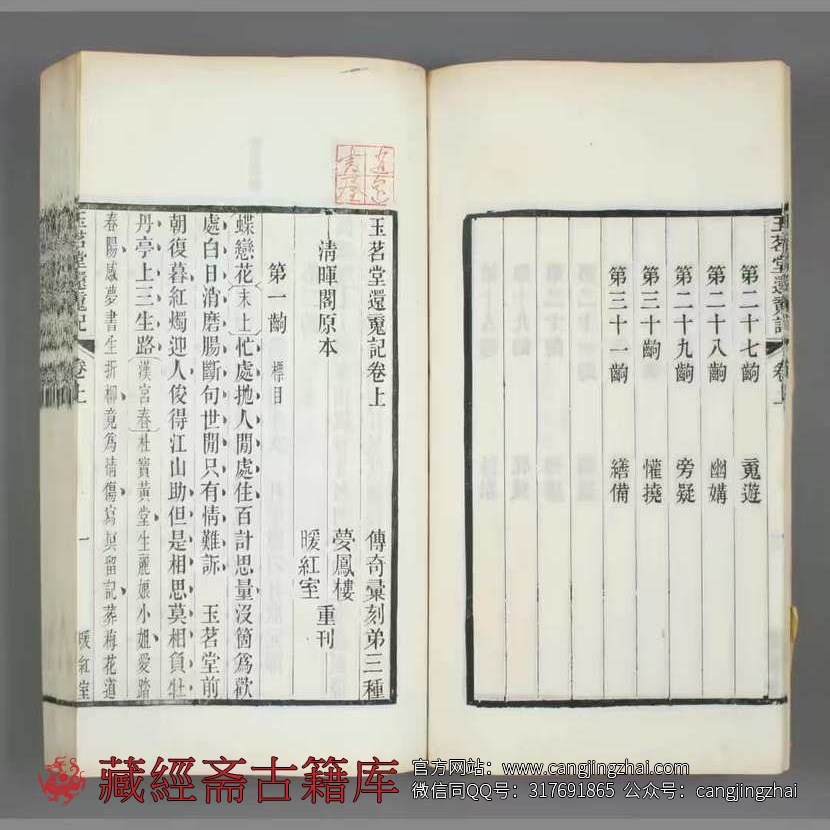 玉茗堂還䰟記 卷上
第二十七齣 䰟遊
第二十八齣 幽媾
第二十九齣 旁疑
第三十齣 懽撓
第三十一齣 繕備
玉茗堂還䰟記卷上 傳奇彙刻弟三種
清暉閣原本 夢鳳樓
暖紅室 重刊
第一齣 標目
蝶戀花 末上 忙處抛人閒處住百計思量沒箇爲歡
處白日消磨腸斷句世閒只有情難訴 玉茗堂前
朝復暮紅燭迎人俊得江山助但是相思莫相負牡
丹亭上三生路 漢宮春 杜寶黃堂生麗娘小姐愛踏
春陽感夢書生折柳竟爲情傷寫眞留記葬梅花道
玉茗堂還䰟記 卷上 一 暖紅室
藏經斋古籍库
官方网站：www.cangjingzhai.com
微信同QQ号：317691865 公众号：cangjingzhai